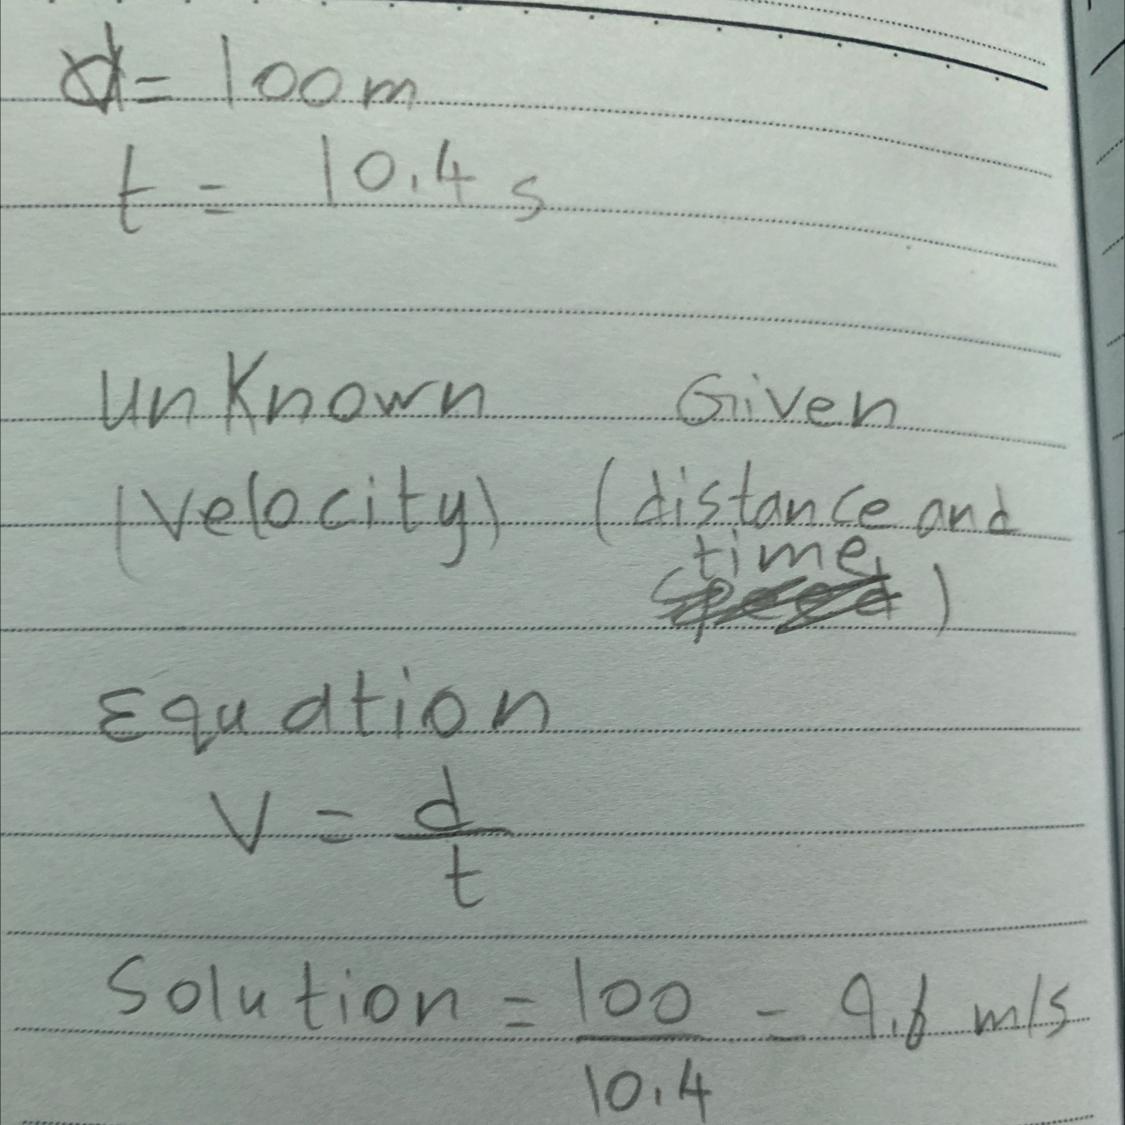 d = 100 m
t = 10.4 s
unKnown Given
(Velocity) (distance and
time
speed )
Equation
V = d
t
Solution = 100 = 9.6 m/s
10.4